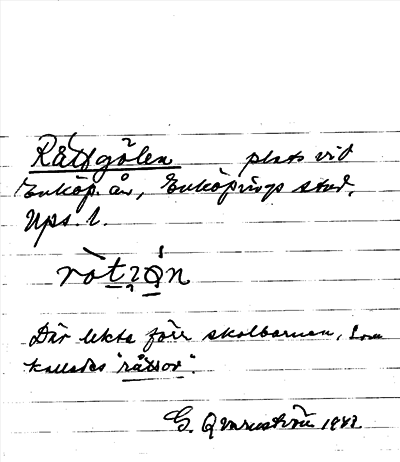 Råttgölen plats vid
Enköp. ån, Enköpings stad,
Ups. l.
Där lekte förr skolbarnen, som
kallades "råttor".
G. 1941